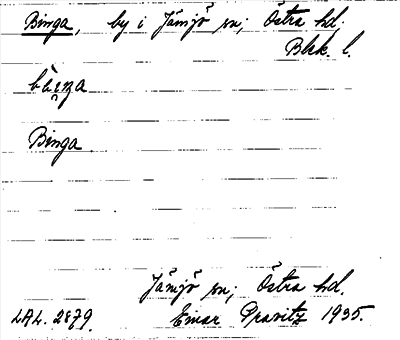 Binga, by i Jämjö sn; Östra hd.
Blek. l.
Binga
Jämjö sn; Östra hd.
LAL. 2879. Einar Pravitz 1935.